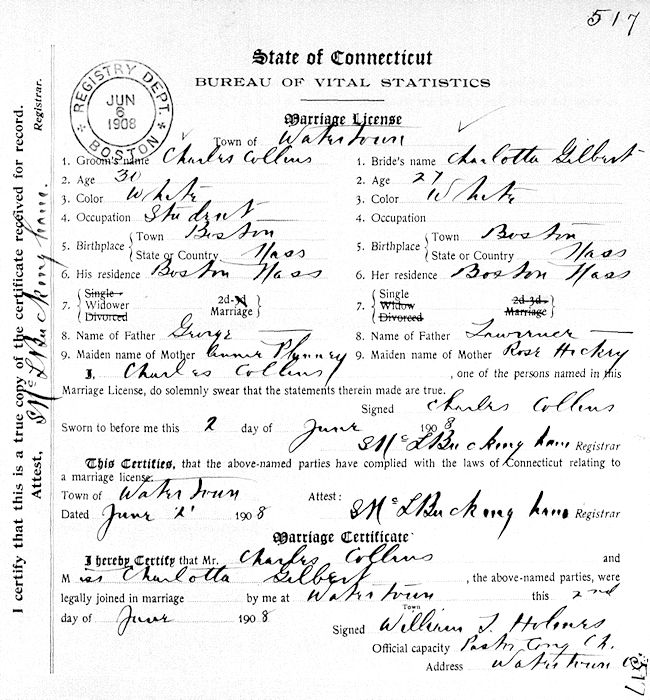 517
State of Connecticut
BUREAU OF VITAL STATISTICS
REGISTRY DEPT. BOSTON
JUN
6
1908
Marriage License
Town of Watertown
1. Groom's name Charles Collins 1. Bride's name Charlotta Gilbert
2. Age 30 2. Age 27
3. Color White 3. Color White
4. Occupation Student 4. Occupation
5. Birthplace { Town Boston 5. Birthplace { Town Boston
State or Country Mass State or Country Mass
6. His residence Boston Mass 6. Her residence Boston Mass
7. { Single Widower Divorced 2d-3d Marriage } 7. { Single Widow Divorced 2d-3d Marriage }
8. Name of Father George 8. Name of Father
9. Maiden name of Mother 9. Maiden name of Mother Rose Hickey
I, Charles Collins, one of the persons named in this
Marriage License, do solemnly swear that the statements therein made are true.
Signed Charles Collins
Sworn to before me this 2 day of June 1908
S Mc L Buckingham Registrar
This Certifies, that the above-named parties have complied with the laws of Connecticut relating to
a marriage license:
Town of Watertown Attest: S Mc L Buckingham Registrar
Dated June 2 1908
Marriage Certificate
I hereby Certify that Mr. Charles Collins and
Miss Charlotta Gilbert, the above-named parties, were
legally joined in marriage by me at Watertown this 2nd
Town
day of June 1908
Signed William T. Holmes
Official capacity Pastor Cong Ch.
Address Watertown C
517
I certify that this is a true copy of the certificate received for record.
Attest, S Mc L Buckingham Registrar.